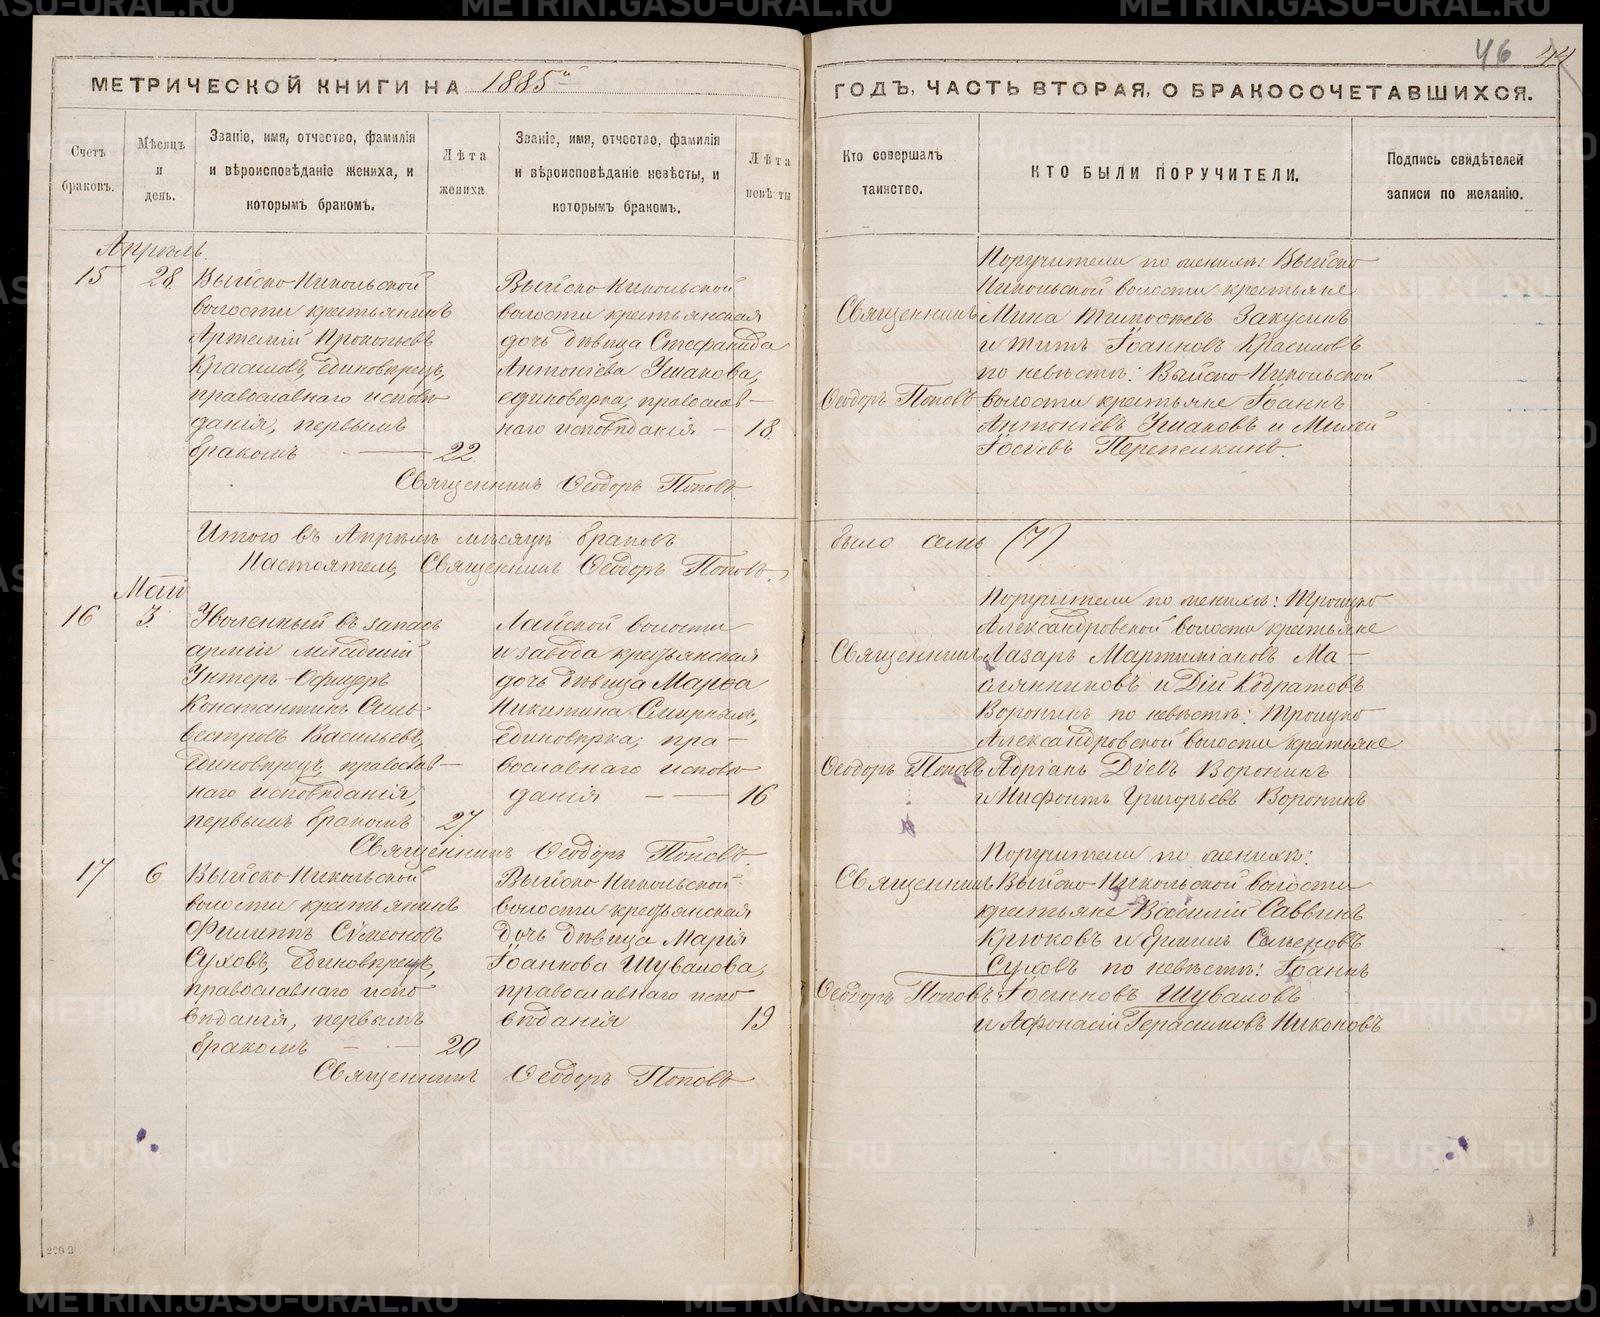 МЕТРИЧЕСКОЙ КНИГИ НА 1885й
Счетъ браковъ.
Мѣсяцъ и день.
Званіе, имя, отчество, фамилія
и вѣроисповѣданіе жениха, и
которымъ бракомъ.
Лѣта жениха
Званіе, имя, отчество, фамилія
и вѣроисповѣданіе невѣсты, и
которымъ бракомъ.
Лѣта невѣсты
Апрѣль
15
28.
Выйско-Никольской
волости крестьянинъ
Артемій Прокопьевъ
Красиловъ, единовѣрецъ,
православнаго исповѣ
данія, первымъ
бракомъ
22
Выйско Никольской
волости крестьянская
дочь дѣвица Стефанида
Антоніева Ушакова,
единовѣрка, православ-
наго исповѣданія —
18.
Священникъ Ѳеодоръ Поповъ
Итого въ Апрѣлѣ мѣсяцѣ браковъ
Настоятель, Священникъ Ѳеодоръ Поповъ.
Май
16
3.
Уволенный въ запасъ
арміи младшій
Унтеръ-Офицеръ
Константинъ Силь
вестровъ Васильевъ,
единовѣрецъ, православ-
наго исповѣданія,
первымъ бракомъ
27
Лайской волости
и завода крестьянская
дочь дѣвица Марѳа
Никитина
единовѣрка, пра-
вославнаго исповѣ
данія
16
Священникъ Ѳеодоръ Поповъ.
17
6
Выйско-Никольской
волости крестьянинъ
Филиппъ Сѵмеоновъ
Суховъ, единовѣрецъ,
православнаго испо
вѣданія, первымъ
бракомъ
20
Выйско Никольской
волости крестьянская
дочь дѣвица Марія
Іоаннова Шувалова,
православнаго испо
вѣданія
19
Священникъ Ѳеодоръ Поповъ
2202
46
44
ГОДЪ, ЧАСТЬ ВТОРАЯ, О БРАКОСОЧЕТАВШИХСЯ.
Кто совершалъ
таинство.
КТО БЫЛИ ПОРУЧИТЕЛИ.
Подпись свидѣтелей
записи по желанію.
Священникъ
Ѳеодоръ Поповъ
Поручители по женихѣ: Выйско
Никольской волости крестьяне
Мина Закусинъ
и Титъ Іоанновъ Красиловъ
по невѣстѣ: Выйско-Никольской
волости крестьяне Іоаннъ
Антоніевъ Ушаковъ и
Іосіевъ Перепелкинъ.
было семь (7)
Священникъ
Ѳеодоръ Поповъ
Поручители по женихѣ: Троицко
Александровской волости крестьяне
Лазарь Мартиніановъ Ма-
слянниковъ и Дій Кодратовъ
Воронинъ по невѣстѣ: Троицко
Александровской волости крестьяне
Адріанъ Діевъ Воронинъ
и Нифонтъ Григорьевъ Воронинъ
Священникъ
Ѳеодоръ Поповъ
Поручители по женихѣ:
Выйско-Никольской волости
крестьяне Василій Саввинъ
Крюковъ и Ермилъ Семеновъ
Суховъ по невѣстѣ: Іоаннъ
Іоанновъ Шуваловъ
и Афонасій Герасимовъ Никоновъ
METRIKI.GASO-URAL.RU